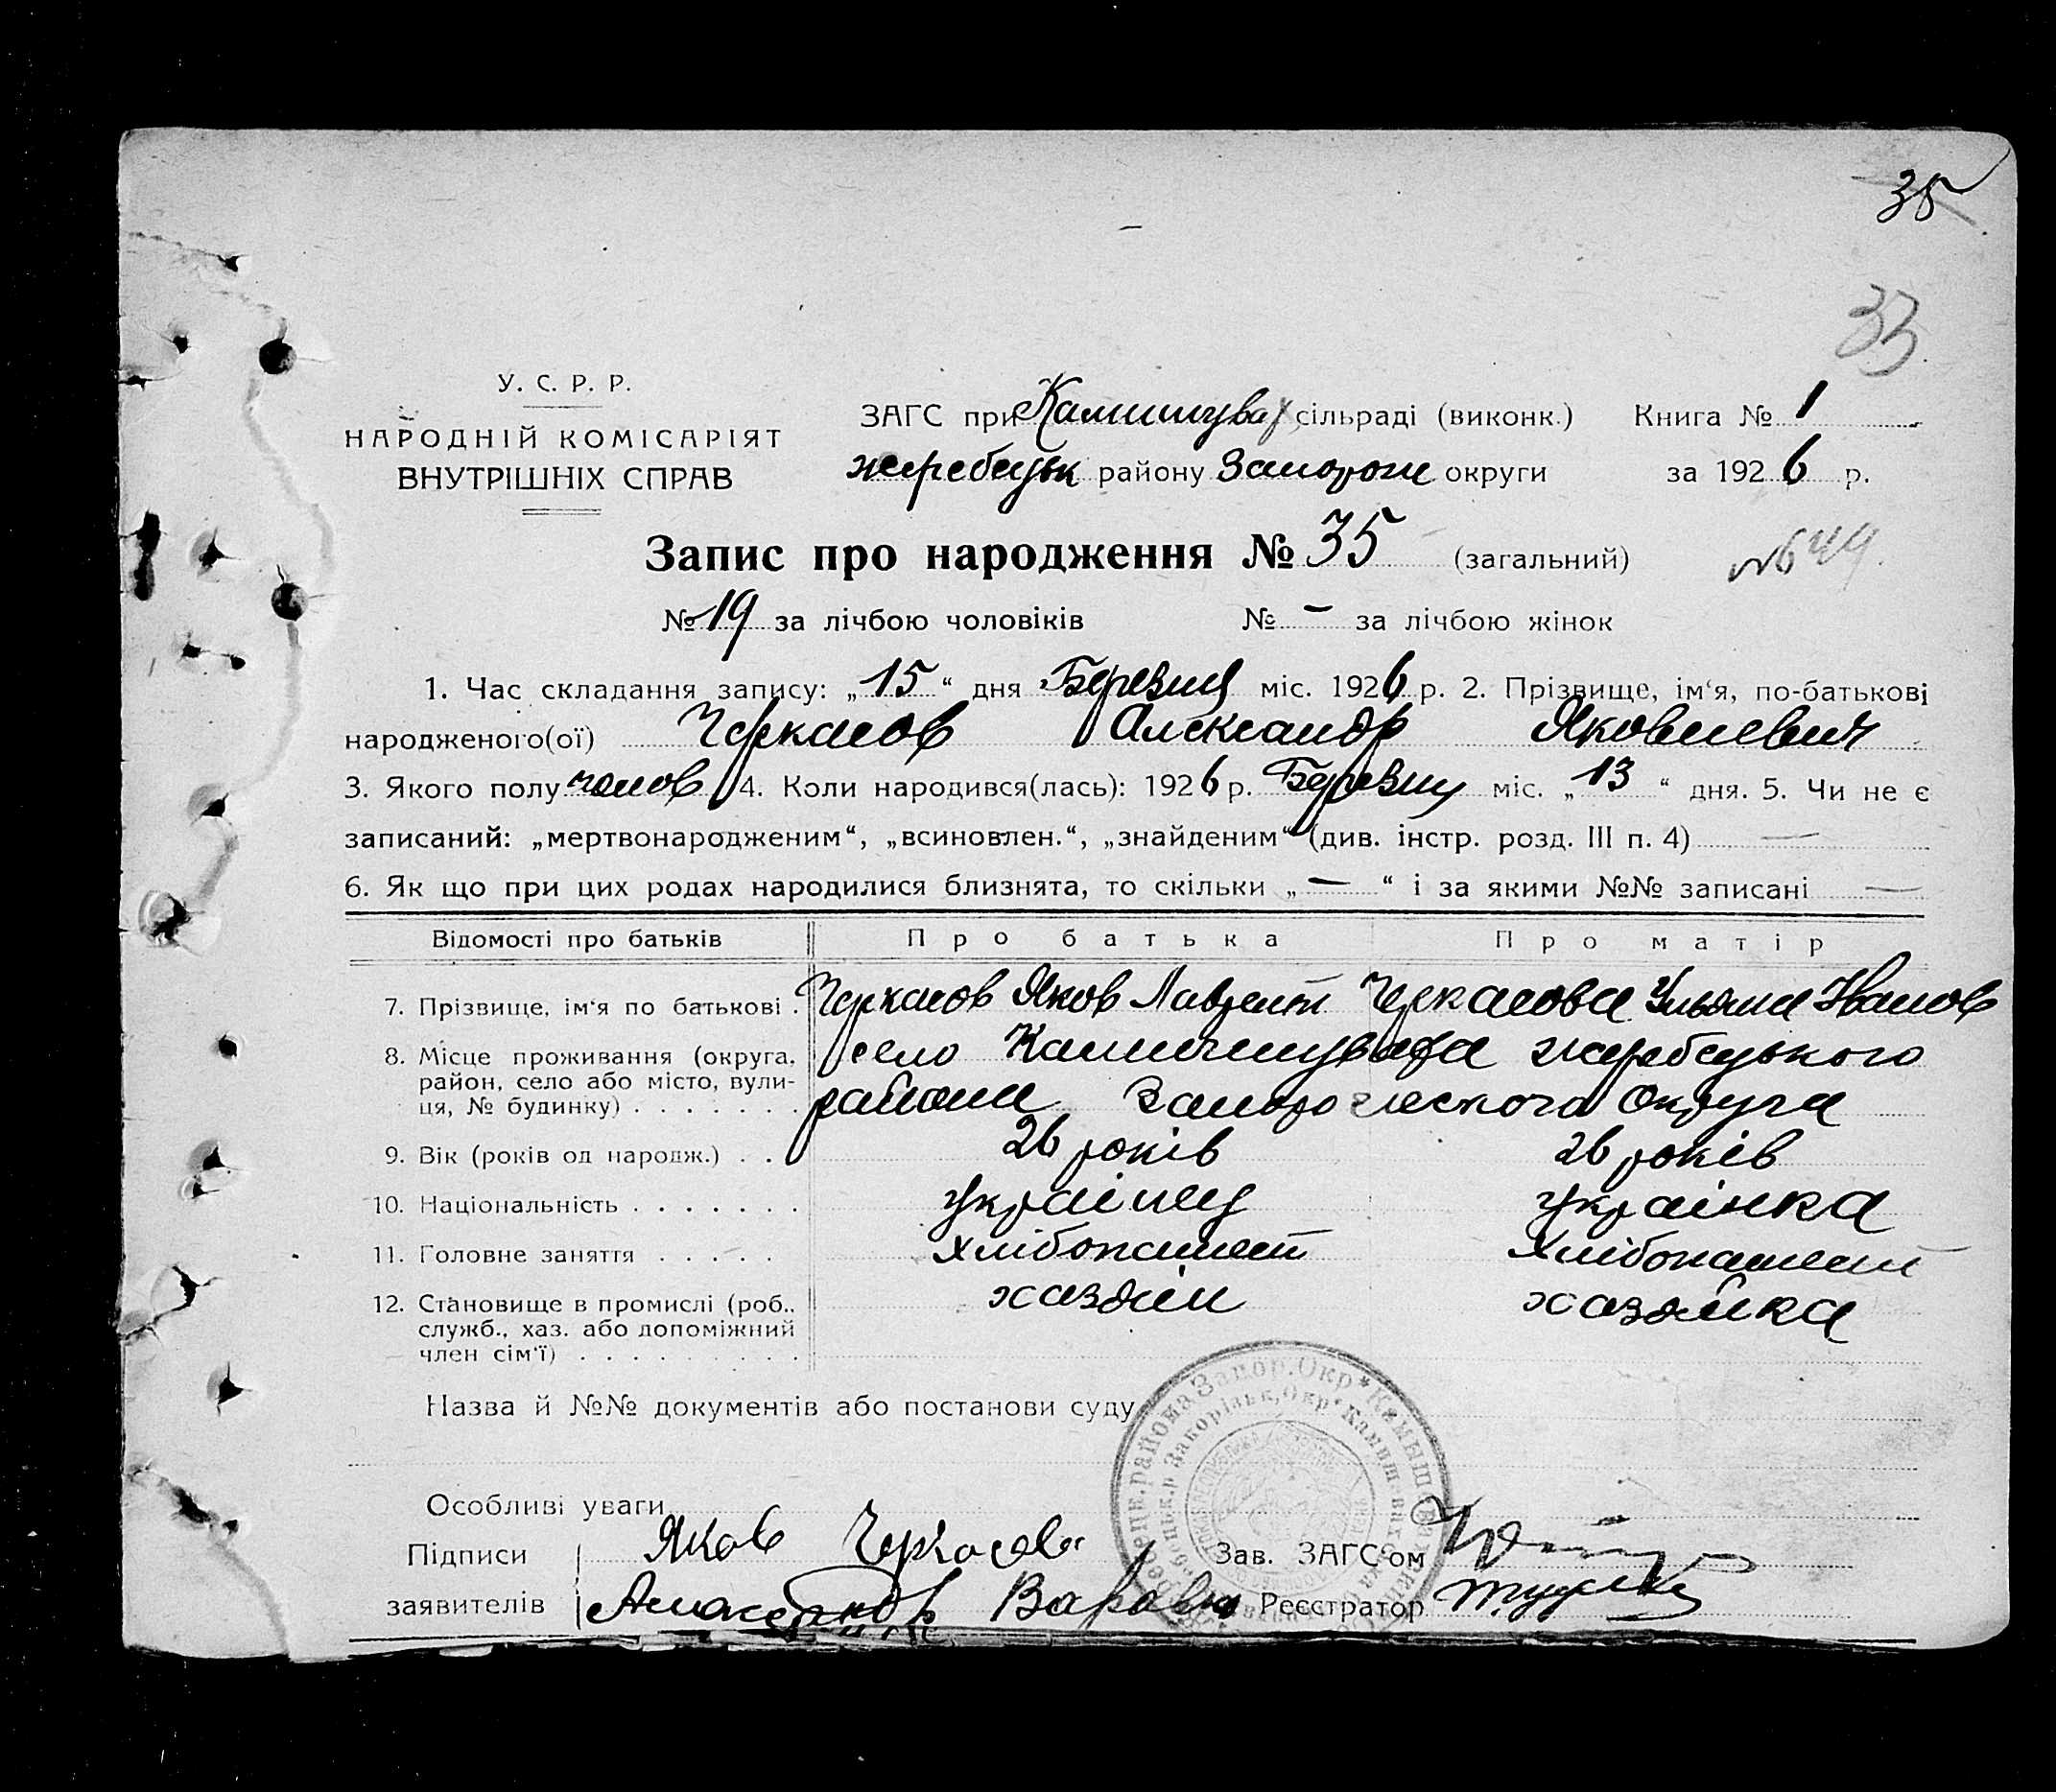 35
33
У. С. Р. Р.
НАРОДНІЙ КОМІСАРІЯТ
ВНУТРІШНІХ СПРАВ
ЗАГС при Камишува сільраді (виконк.) Книга № 1
жеребецьк району Запорож округи за 1926 р.
Запис про народження № 35 (загальний)
№ 19 за лічбою чоловіків № — за лічбою жінок
1. Час складання запису: „15“ дня Березня міс. 1926 р. 2. Прізвище, ім‘я, по-батькові
народженого(ої) Черкасов Александр Яковлевич
3. Якого полу чолов 4. Коли народився(лась): 1926 р. Березня міс. „13“ дня. 5. Чи не є
записаний: „мертвонародженим“, „всиновлен.“, „знайденим“ (див. інстр. розд. III п. 4) —
6. Як що при цих родах народилися близнята, то скільки „—“ і за якими №№ записані —
Відомості про батьків Про батька Про матір
7. Прізвище, ім‘я по батькові . Черкасов Яков Лаврент Черкасова Ульяна Иванов
8. Місце проживання (округа, район, село або місто, вули-ця, № будинку) . . . . . . .
село Камишуваха жеребецького
района Запорожского Округа
9. Вік (років од народж.) . . . 26 років 26 років
10. Національність . . . . . . . українец українка
11. Головне заняття . . . . . хлібопашест хлібопашест
12. Становище в промислі (роб., служб., хаз. або допоміжний член сім‘ї) . . . . . . . . .
хазяїн хазяйка
Назва й №№ документів або постанови суду
Особливі уваги
Підписи Яков Черкасов Зав. ЗАГС‘ом
заявителів Александр Реєстратор